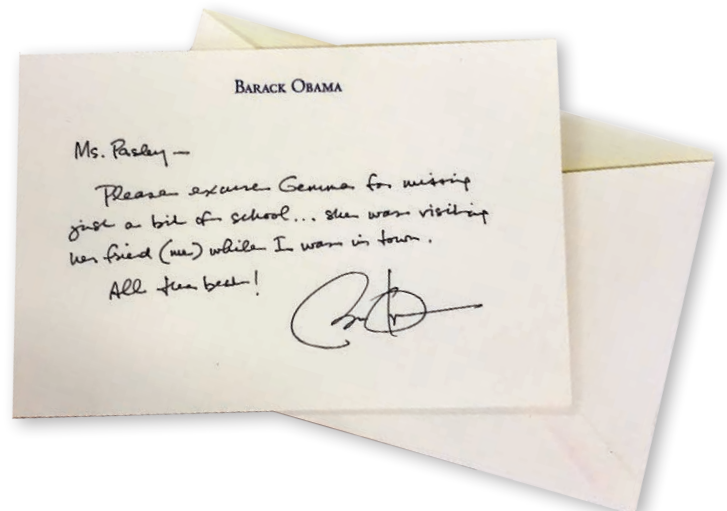 BARACK OBAMA
Ms. Pasley —
Please excuse Gemma for missing
just a bit of school... she was visiting
her friend (me) while I was in town.
All the best!